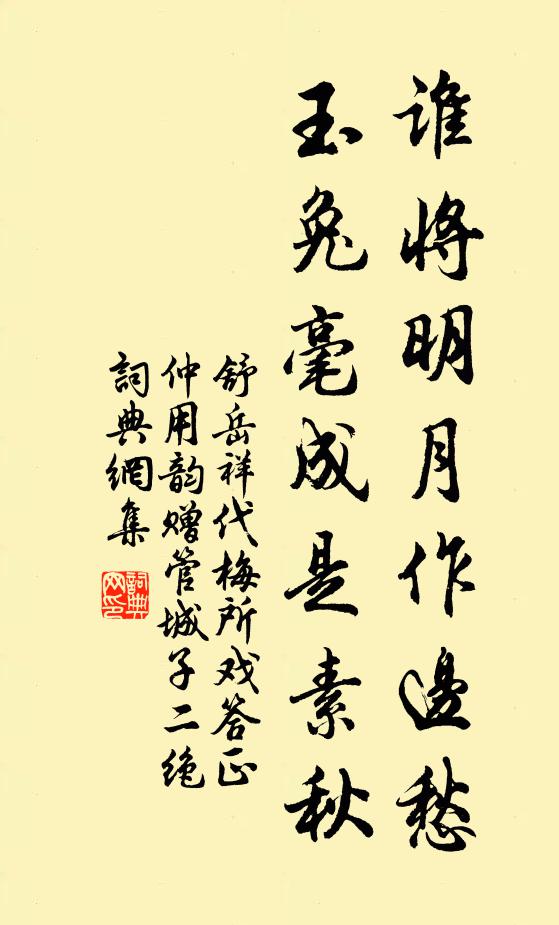 誰將明月作邊愁
玉兔毫成是素秋
舒岳祥代梅所戏答正
仲用韵赠管城子二绝
詞典網集
詞典网印